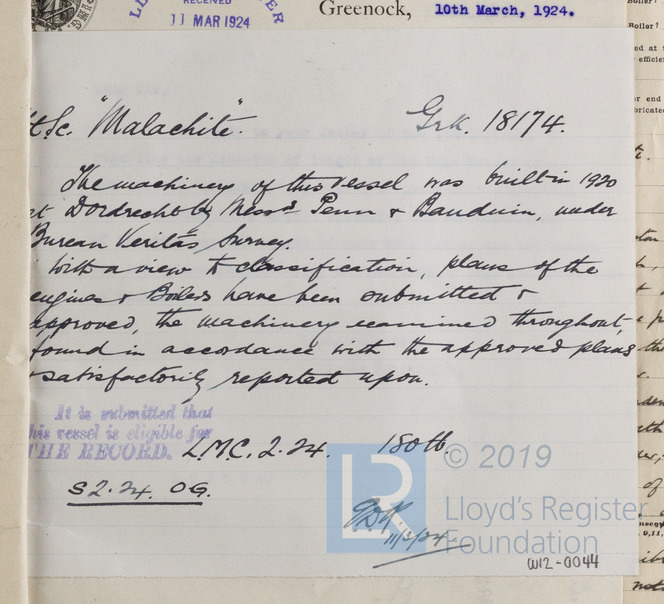 RECEIVED
11 MAR 1924
Greenock, 10th March, 1924.
"Malachite". Grk. 18174.
The machinery of this vessel was built in 1920
at Dordrecht by Messrs Penn & Bauduin, under
Bureau Veritas Survey.
With a view to classification, plans of the
engines & Boilers have been submitted &
approved, the machinery examined throughout,
found in accordance with the approved plans
& satisfactorily reported upon.
It is submitted that
this vessel is eligible for
THE RECORD. L.M.C. 2.24. 180 lb.
S2.24. OG.
11/3/24
© 2019
LR
Lloyd's Register
Foundation
W12-0044